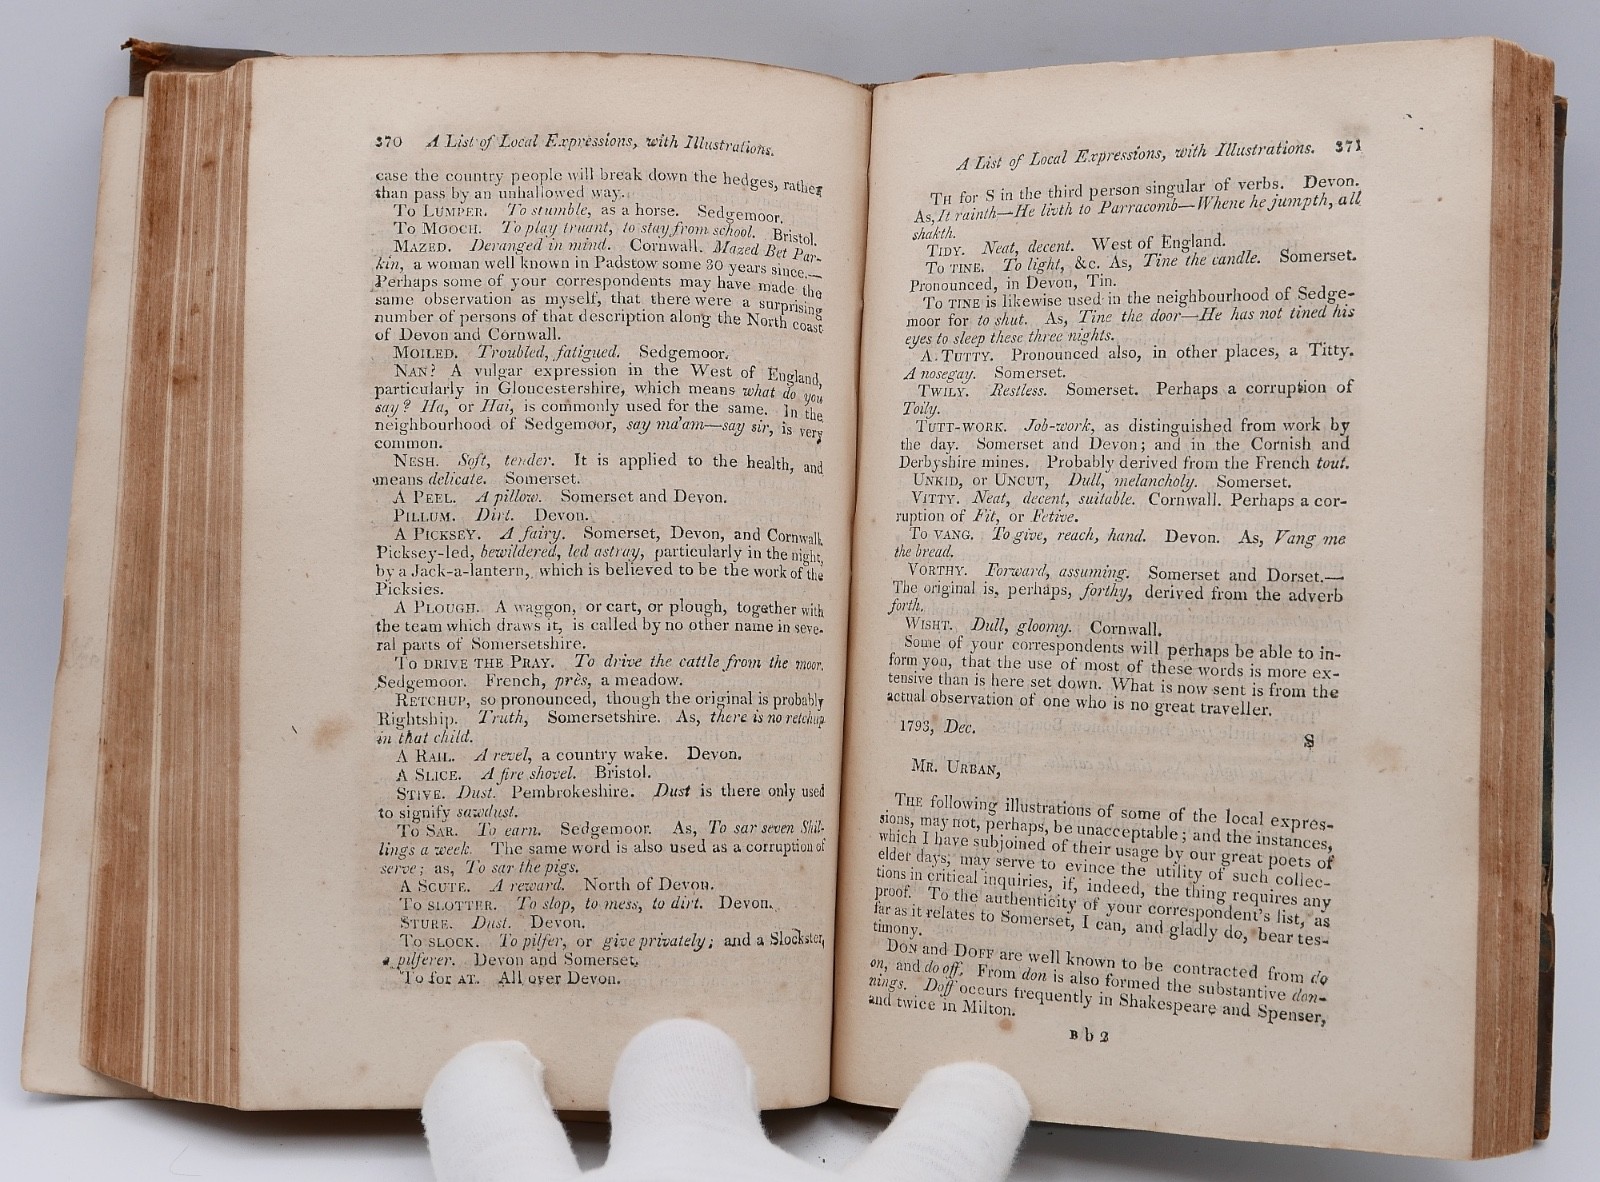 370 A List of Local Expressions, with Illustrations.
case the country people will break down the hedges, rather
than pass by an unhallowed way.
To LUMPER. To stumble, as a horse. Sedgemoor.
To MOOCH. To play truant, to stay from school. Bristol.
MAZED. Deranged in mind. Cornwall. Mazed Bet Par-
kin, a woman well known in Padstow some 30 years since.—
Perhaps some of your correspondents may have made the
same observation as myself, that there were a surprising
number of persons of that description along the North coast
of Devon and Cornwall.
MOILED. Troubled, fatigued. Sedgemoor.
NAN? A vulgar expression in the West of England,
particularly in Gloucestershire, which means what do you
say? Ha, or Hai, is commonly used for the same. In the
neighbourhood of Sedgemoor, say ma'am—say sir, is very
common.
NESH. Soft, tender. It is applied to the health, and
means delicate. Somerset.
A PEEL. A pillow. Somerset and Devon.
PILLUM. Dirt. Devon.
A PICKSEY. A fairy. Somerset, Devon, and Cornwall.
Picksey-led, bewildered, led astray, particularly in the night,
by a Jack-a-lantern, which is believed to be the work of the
Picksies.
A PLOUGH. A waggon, or cart, or plough, together with
the team which draws it, is called by no other name in seve-
ral parts of Somersetshire.
To DRIVE THE PRAY. To drive the cattle from the moor.
Sedgemoor. French, près, a meadow.
RETCHUP, so pronounced, though the original is probably
Rightship. Truth, Somersetshire. As, there is no retchup
in that child.
A RAIL. A revel, a country wake. Devon.
A SLICE. A fire shovel. Bristol.
STIVE. Dust. Pembrokeshire. Dust is there only used
to signify sawdust.
To SAR. To earn. Sedgemoor. As, To sar seven Shil-
lings a week. The same word is also used as a corruption of
serve; as, To sar the pigs.
A SCUTE. A reward. North of Devon.
To SLOTTER. To slop, to mess, to dirt. Devon.
STURE. Dust. Devon.
To SLOCK. To pilfer, or give privately; and a Slockster,
a pilferer. Devon and Somerset.
To for AT. All over Devon.
A List of Local Expressions, with Illustrations. 371
TH for S in the third person singular of verbs. Devon.
As, It rainth—He livth to Parracomb—Whene he jumpth, all
shakth.
TIDY. Neat, decent. West of England.
To TINE. To light, &c. As, Tine the candle. Somerset.
Pronounced, in Devon, Tin.
To TINE is likewise used in the neighbourhood of Sedge-
moor for to shut. As, Tine the door—He has not tined his
eyes to sleep these three nights.
A TUTTY. Pronounced also, in other places, a Titty.
A nosegay. Somerset.
TWILY. Restless. Somerset. Perhaps a corruption of
Toily.
TUTT-WORK. Job-work, as distinguished from work by
the day. Somerset and Devon; and in the Cornish and
Derbyshire mines. Probably derived from the French tout.
UNKID, or UNCUT, Dull, melancholy. Somerset.
VITTY. Neat, decent, suitable. Cornwall. Perhaps a cor-
ruption of Fit, or Fetive.
To VANG. To give, reach, hand. Devon. As, Vang me
the bread.
VORTHY. Forward, assuming. Somerset and Dorset.—
The original is, perhaps, forthy, derived from the adverb
forth.
WISHT. Dull, gloomy. Cornwall.
Some of your correspondents will perhaps be able to in-
form you, that the use of most of these words is more ex-
tensive than is here set down. What is now sent is from the
actual observation of one who is no great traveller.
1793, Dec.
S
MR. URBAN,
THE following illustrations of some of the local expres-
sions, may not, perhaps, be unacceptable; and the instances,
which I have subjoined of their usage by our great poets of
elder days, may serve to evince the utility of such collec-
tions in critical inquiries, if, indeed, the thing requires any
proof. To the authenticity of your correspondent's list, as
far as it relates to Somerset, I can, and gladly do, bear tes-
timony.
DON and DOFF are well known to be contracted from do
on, and do off. From don is also formed the substantive don-
nings. Doff occurs frequently in Shakespeare and Spenser,
and twice in Milton.
B b 2